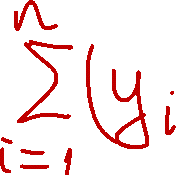 \sum_{i=1}^{n} (y_i